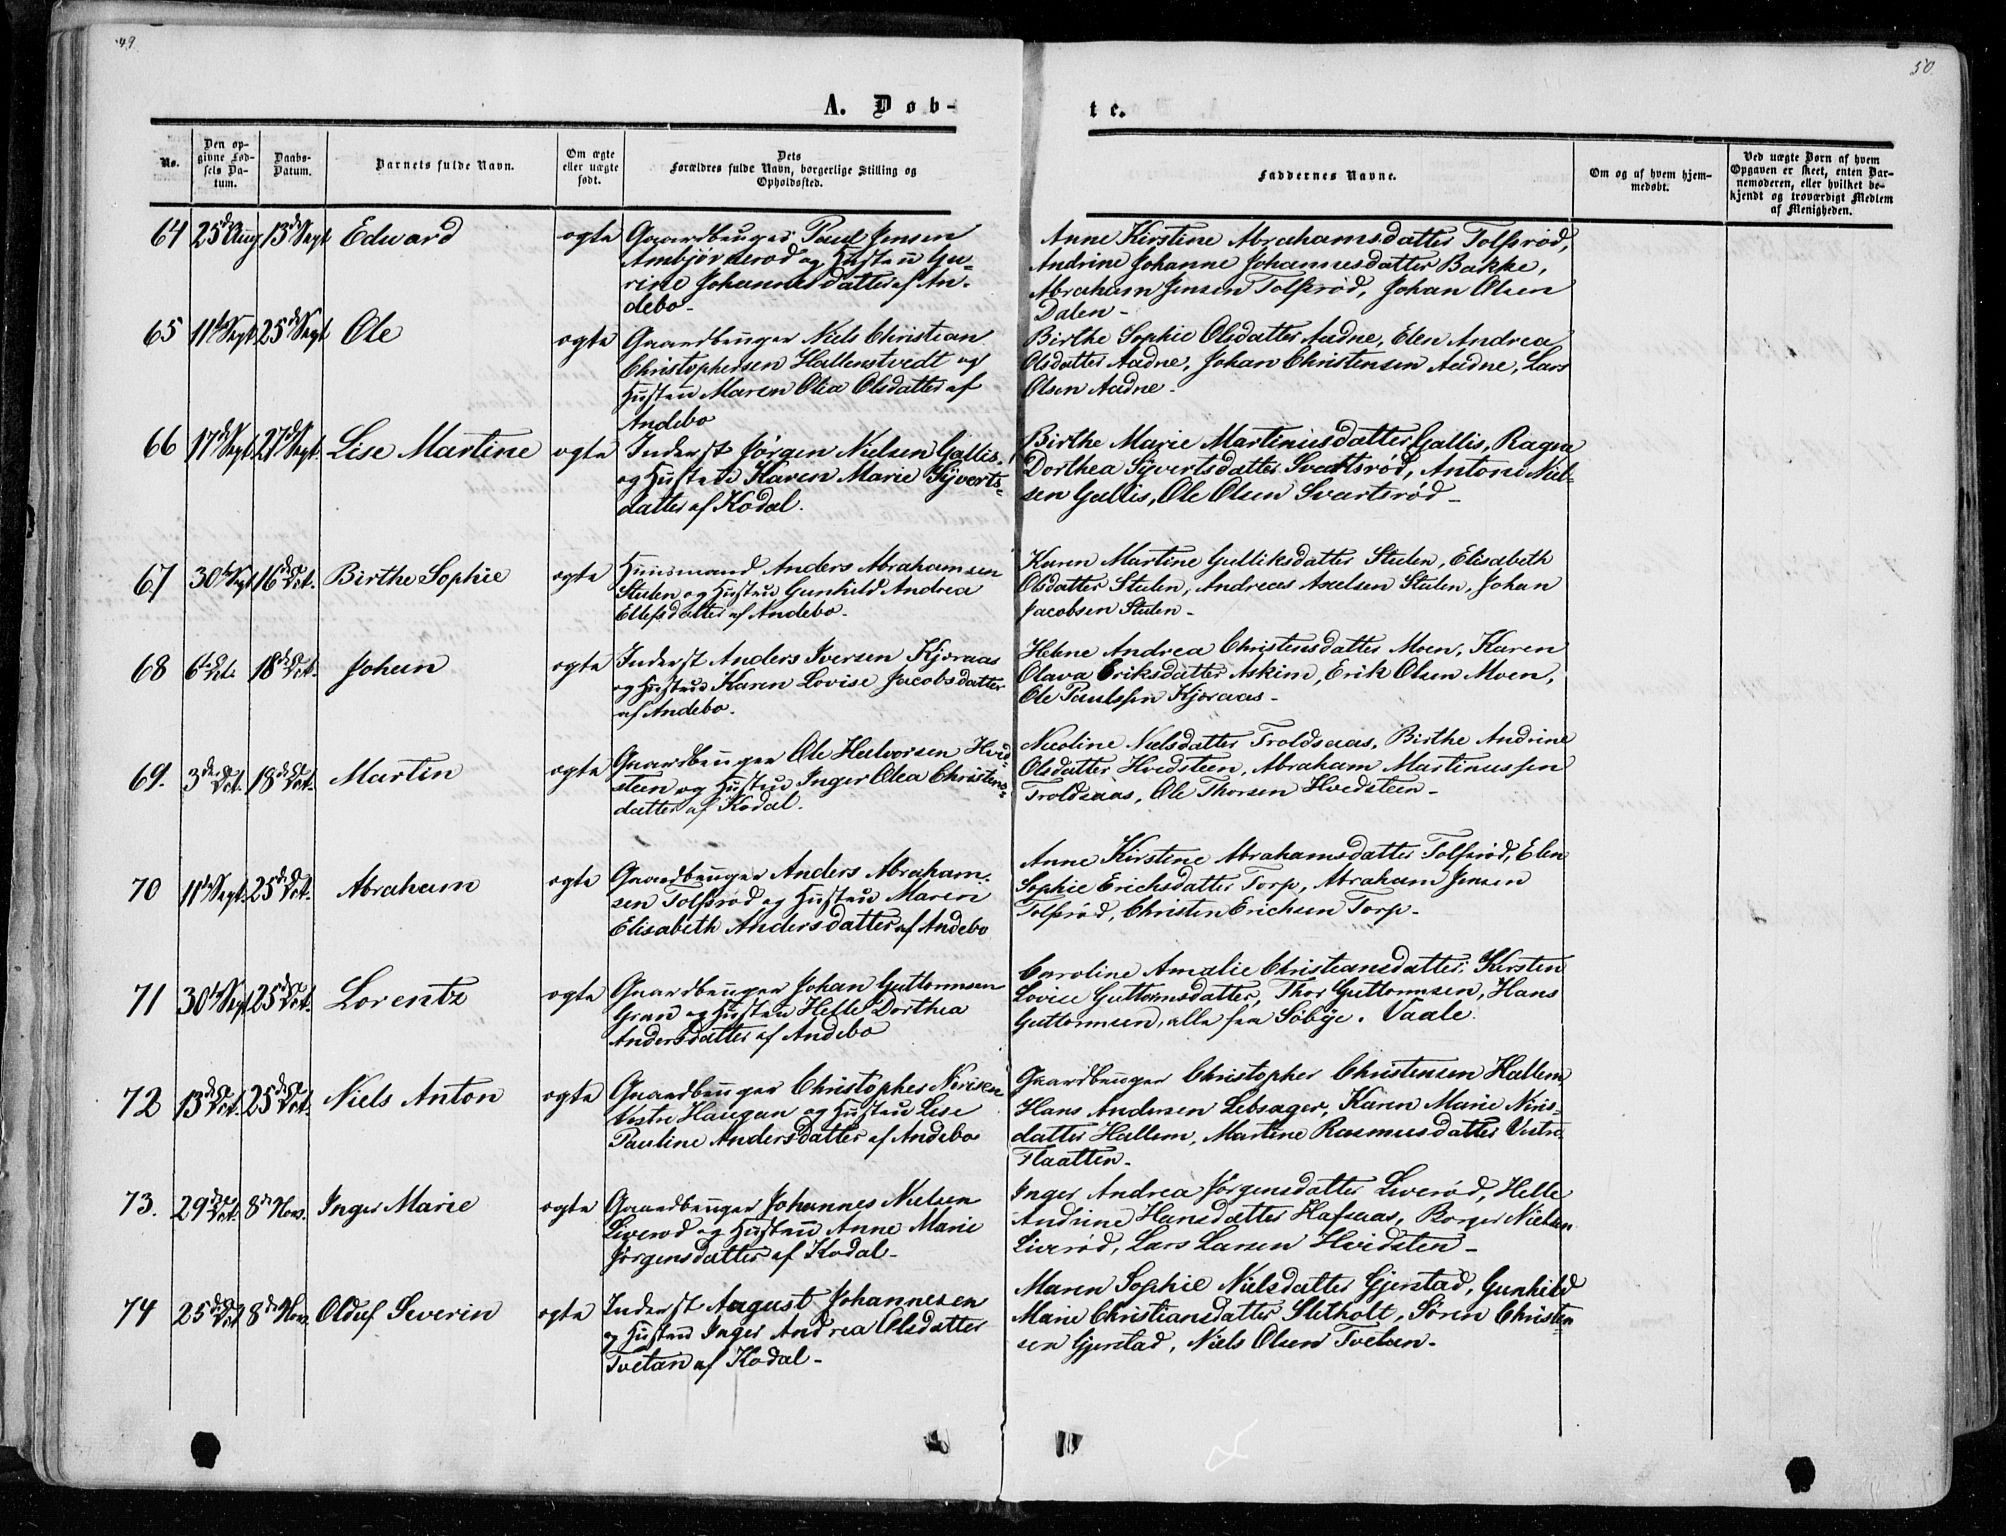 49.
50.
A. Døb-
te.
No.
Den op-
givne Fød-
sels Da-
tum.
Daabs-
Datum.
Barnets fulde Navn.
Om ægte
eller uægte
født.
Dets
Forældres fulde Navn, borgerlige Stilling og
Opholdssted.
Faddernes Navne.
Om og af hvem hjem-
medøbt.
Ved uægte Børn af hvem
Opgaven er skeet, enten Bar-
nemoderen, eller hvilket be-
kjendt og troværdigt Medlem
af Menigheden.
64 25de Aug 13de Sept Edvard ægte Gaardbruger Paul Jensen
Ambjørnerød og Hustru Gu-
rine Johannesdatter af An-
debo-
Anne Kirstine Abrahamsdatter Tolfsrød,
Andrine Johanne Johannesdatter Bakke,
Abraham Jensen Tolfsrød, Johan Olsen
Dalen-
65 11te Sept. 25de Sept Ole ægte Gaardbruger Niels Christian
Christophersen Hallenstvedt og
Hustru Maren Olea Olsdatter af
Andebo
Birthe Sophie Olsdatter Aadne, Elen Andrea
Olsdatter Aadne, Johan Christensen Aadne, Lars
Olsen Aadne-
66 17de Sept. 27de Sept. Lise Martine ægte Inderst Jørgen Nielsen Gallis,
og Hustru Karen Marie Syverts-
datter af Kodal.
Birthe Marie Martiniusdatter Gallis, Ragna
Dorthea Syvertsdatter Svartsrød, Antoni Niel-
sen Gallis, Ole Olsen Svartsrød-
67 30te Sept 16de Oct. Birthe Sophie ægte Huusmand Anders Abrahamsen
Stulen og Hustru Gunhild Andrea
Ellefsdatter af Andebo-
Karen Martine Gulliksdatter Stulen, Elisabeth
Olsdatter Stulen, Andreas Axelsen Stulen, Johan
Jacobsen Stulen-
68 6te Oct. 18de Oct. Johan ægte Inderst Anders Iversen Kjøraas
og Hustru Karen Lovise Jacobsdatter
af Andebo.
Helene Andrea Christensdatter Moen, Karen
Olava Eriksdatter Askim, Erik Olsen Moen,
Ole Paulssen Kjøraas-
69. 3de Oct. 18de Oct. Martin ægte Gaardbruger Ole Halvorsen Hvid-
steen og Hustru Inger Olea Christens-
datter af Kodal.
Nicoline Nielsdatter Troldsaas, Birthe Andrine
Olsdatter Hvidsteen, Abraham Martinussen
Troldsaas, Ole Thorsen Hvidsteen-
70 11te Sept. 25de Oct. Abraham ægte Gaardbruger Anders Abraham-
sen Tolfsrød og Hustru Maren
Elisabeth Andersdatter af Andebo
Anne Kirstine Abrahamsdatter Tolfsrød, Elen
Sophie Erichsdatter Torp, Abraham Jensen
Tolfsrød, Christen Erichsen Torp-
71 30te Sept 25de Oct. Lorentz ægte Gaardbruger Johan Guttormsen
Gran og Hustru Helle Dorthea
Andersdatter af Andebo
Caroline Amalie Christiansdatter, Kirsten
Lovise Guttormsdatter, Thor Guttormsen, Hans
Guttormsen, alle fra Søbye. Vaale.
72 13de Oct. 25de Oct. Niels Anton ægte Gaardbruger Christopher Nirisen
Vestre Haugan og Hustru Lise
Pauline Andersdatter af Andebo
Gaardbruger Christopher Christensen Hallem,
Hans Andersen Lebsager, Karen Marie Niris-
datter Hallem, Martine Rasmusdatter Vestre
Flaatten-
73. 29de Oct. 8de Nov. Inger Marie ægte Gaardbruger Johannes Nielsen
Liverød og Hustru Anne Marie
Jørgensdatter af Kodal-
Inger Andrea Jørgensdatter Liverød, Helle
Andrine Hansdatter Hafsaas, Borger Nielsen
Liverød, Lars Larsen Hvidsten-
74 25de Oct 8de Nov. Oluf Severin ægte Inderst August Johannesen
og Hustru Inger Andrea Olsdatter
Tvetan af Kodal-
Maren Sophie Nielsdatter Gjerstad, Gunhild
Marie Christiansdatter Sletholt, Søren Christen-
sen Gjerstad, Niels Olsen Tvetan-